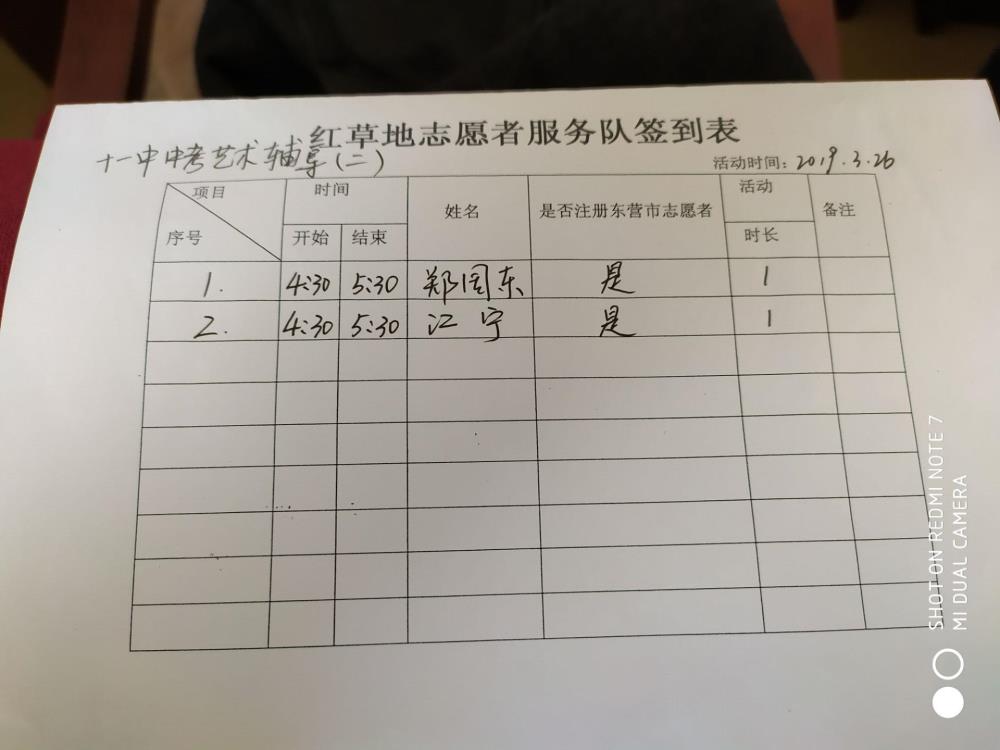 红草地志愿者服务队签到表
十一中中考艺术辅导(二) 活动时间：2019.3.26
项目 时间 姓名 是否注册东营市志愿者 活动 备注
序号 开始 结束 时长
1. 4:30 5:30 郑周东 是 1
2. 4:30 5:30 江宁 是 1
SHOT ON REDMI NOTE 7
MI DUAL CAMERA